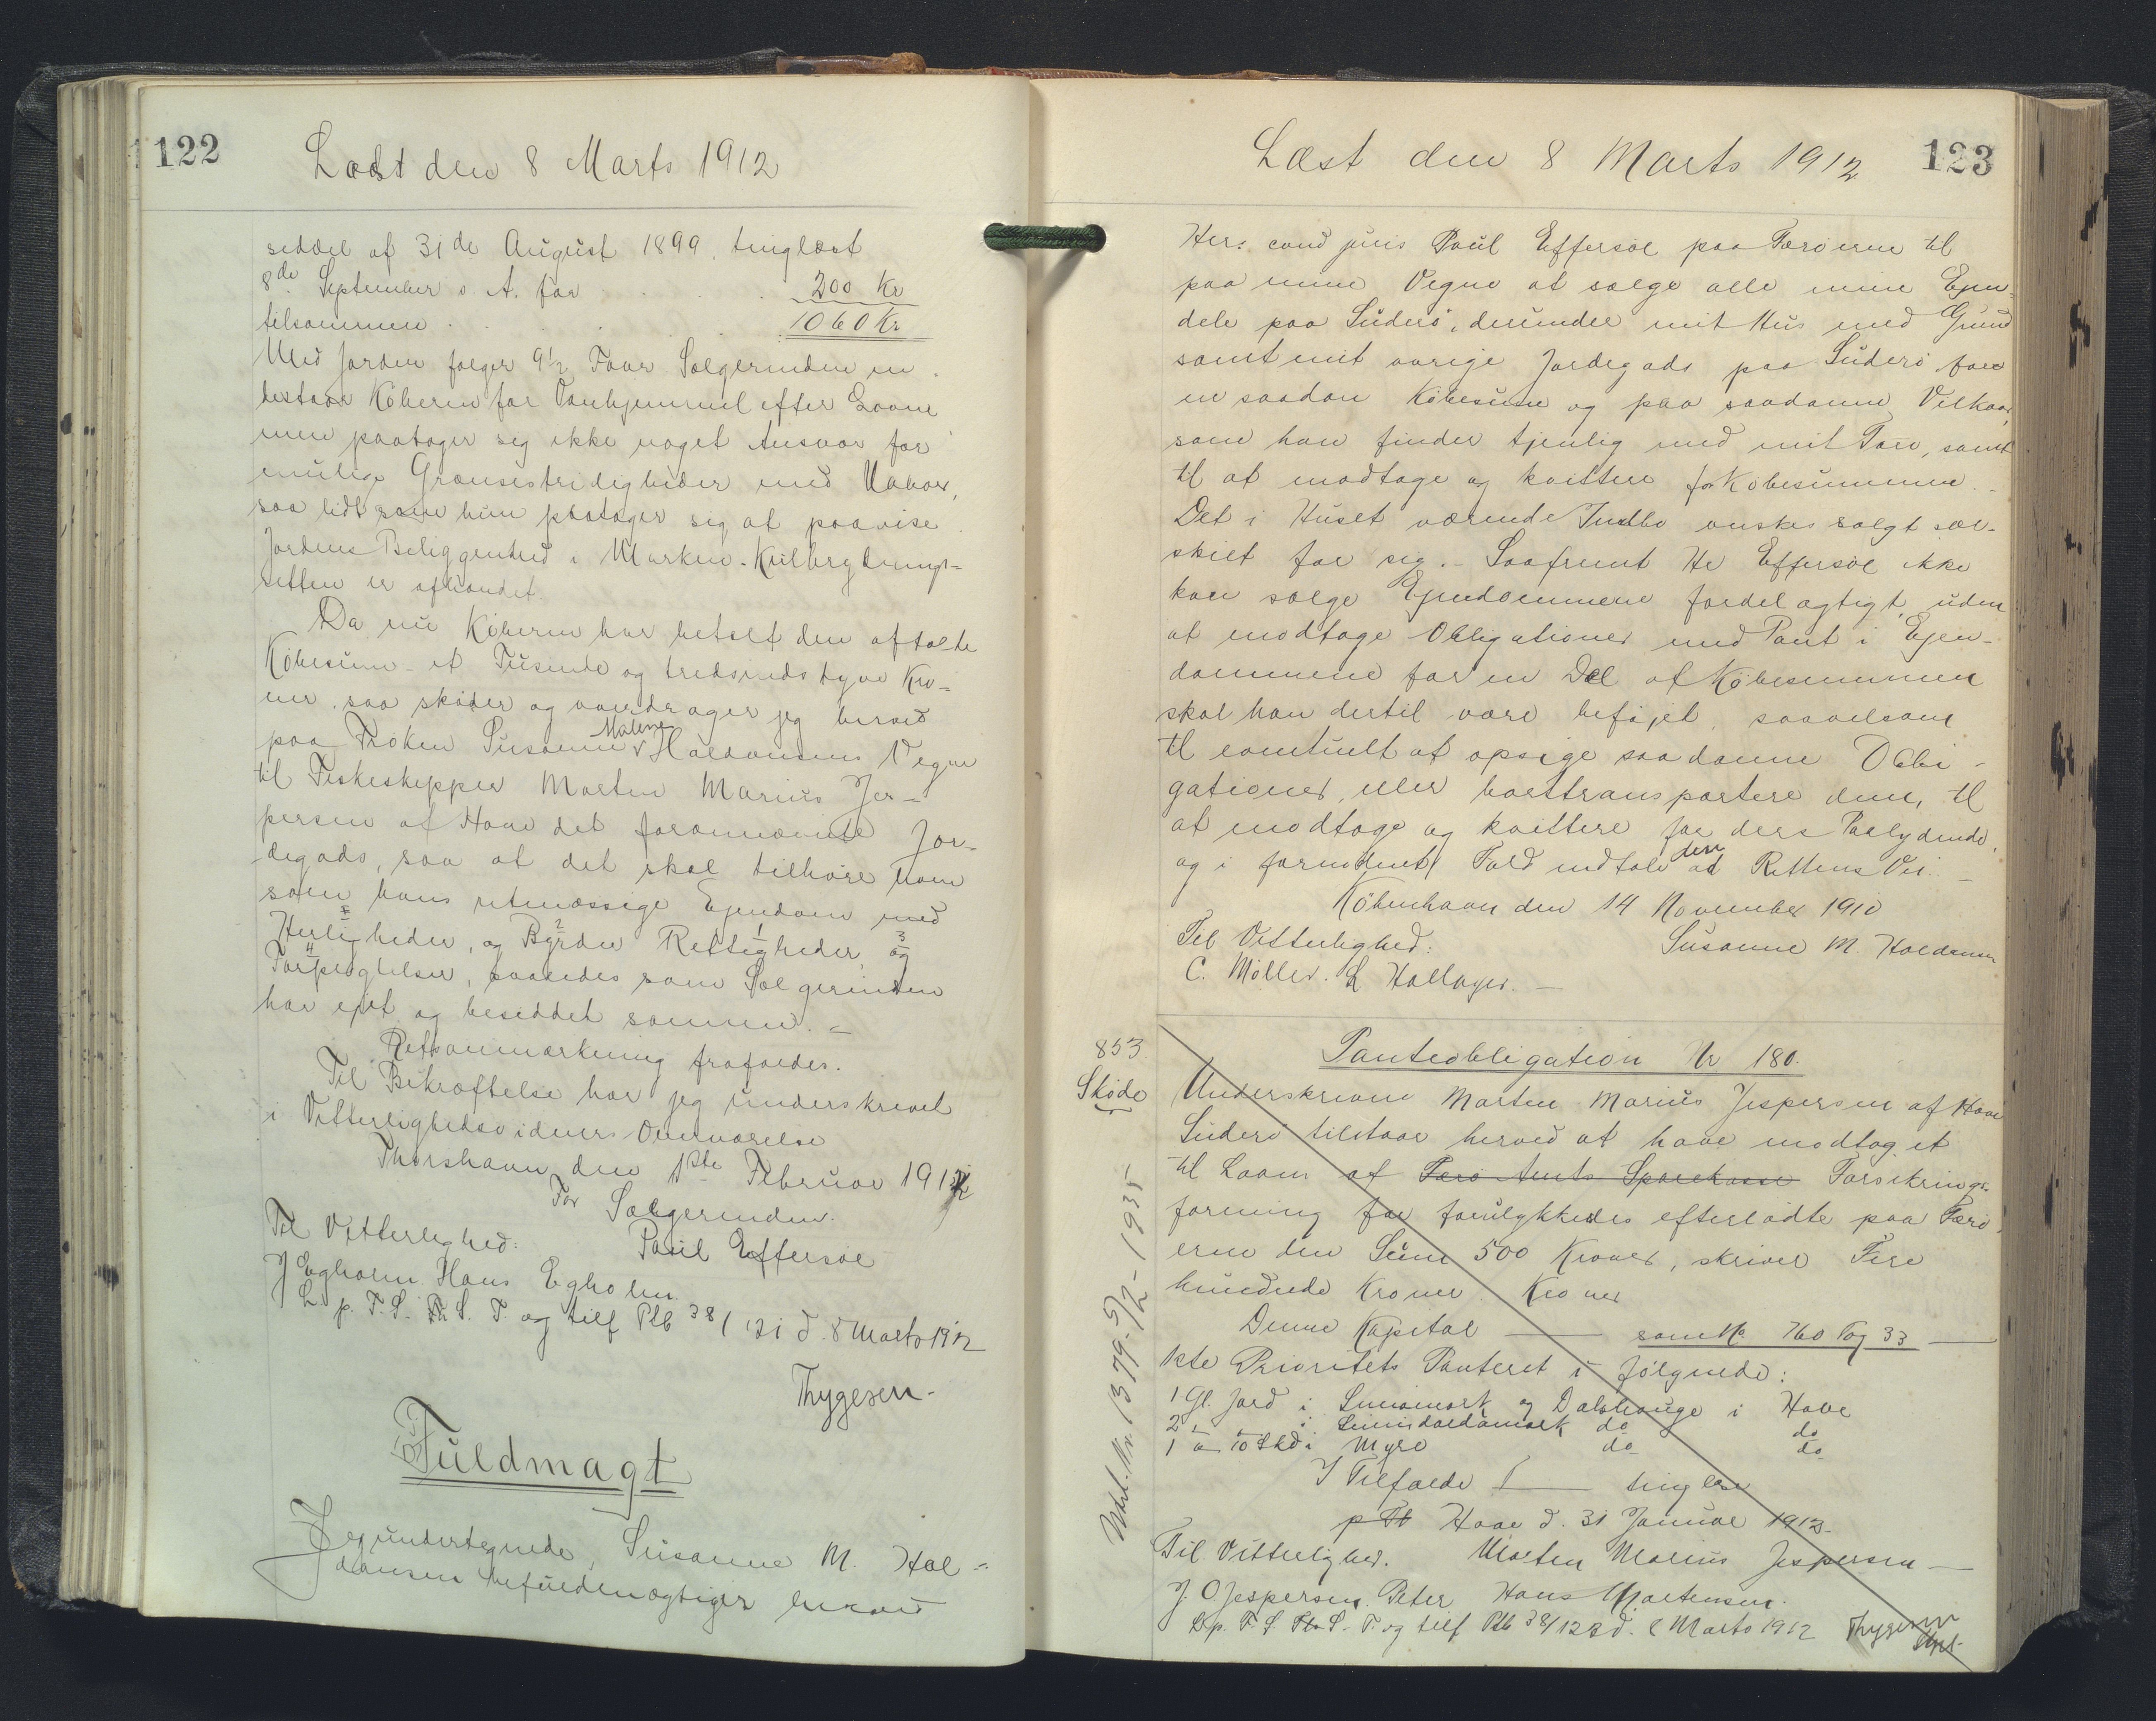 122
Læst den 8 Marts 1912
seddel af 31de August 1899, tinglæst
8de September s. A. for . . . 200 Kr
tilsammen . . . . 1060 Kr
Med Jorden følger 9½ Faar Sælgerinden in-
destaar Køberen for Vanhjemmel efter Loven
men paatager sig ikke noget Ansvar for
mulige Grænsestridigheder med Naboer,
saa lidt som hun paatager sig at paavise
Jordens Beliggenhed i Marken. Kulbrydnings-
retten er afhændet
Da nu Køberen har betalt den aftalte
Købesum - et Tusinde og tredsindstyve Kro-
ner, saa skøder og overdrager jeg herved
paa Frøken Susanne Malene Haldansens Vegne
til Fiskeskipper Morten Marius Jes-
persen af Hove det forannævnte Jor-
degods, saa at det skal tilhøre ham
som hans retmæssige Ejendom med
Herligheder, og Byrder Rettigheder, og
Forpligtelser, saaledes som Sælgerinden
har ejet og besiddet samme. -
Retsanmærkning frafaldes.
Til Bekræftelse har jeg underskrevet
i Vitterlighedsvidners Overværelse
Thorshavn den 1ste Februar 1912
For Sælgerinden.
Til Vitterlighed: Poul Effersøe
J Egholm Hans Egholm.
L. p. F. S. Th S. T. og tilf Plb 38/121 d. 8 Marts 1912
Thygesen-
Fuldmagt
Jeg undertegnede, Susanne M. Hal-
dansen befuldmægtiger herved
Læst den 8 Marts 1912
123
Herr cand juris Poul Effersøe paa Færøerne til
paa mine Vegne at sælge alle mine Ejen-
dele paa Suderø, derunder mit Hus med Grund
samt mit øvrige Jordegods paa Suderø for
en saadan Købesum og paa saadanne Vilkaar,
som han finder tjenlig med mit Tarv, samt
til at modtage og kvittere for Købesummen. -
Det i Huset værende Indbo ønskes solgt sær-
skilt for sig. - Saafremt Hr Effersøe ikke
kan sælge Ejendommene fordelagtigt, uden
at modtage Obligationer med Pant i Ejen-
dommene for en Del af Købesummen
skal han dertil være beføjet, saavelsom
til eventuelt at opsige saadanne Obli-
gationer, eller borttransportere dem, til
at modtage og kvittere for deres Paalydende,
og i fornødent Fald indtale dem ad Rettens Vei. -
København den 14 November 1910
Til Vitterlighed: Susanne M. Haldansen
C. Møller. L Hallager. -
853
Skøde
Panteobligation Nr 180.
Underskrevne Morten Marius Jespersen af Hove
Suderø tilstaar herved at have modtaget
til Laans af Færø Amts Sparekasse Forsikrings-
forening for forulykkedes efterladte paa Færø-
erne den Sum 500 Kroner, skriver Fire
hundrede Kroner. Kroner
Denne Kapital —— som No 760 Pag 33 ——
1ste Prioritets Panteret i følgende:
1 Gl. Jord i og i Hove
2 - i do do
1 - 10 Skd i Myre do do
I Tilfælde —— tinglæse
p Tt Hove d. 31 Januar 1912.
Til Vitterlighed. Morten Marius Jespersen —
J. O Jespersen. Peter Hans Mortensen.
L. p. F. S. Th. S. T. og tilf Plb 38/123 d. 8 Marts 1912 Thygesen
Udsl. Nr. 1379-5/2-1935